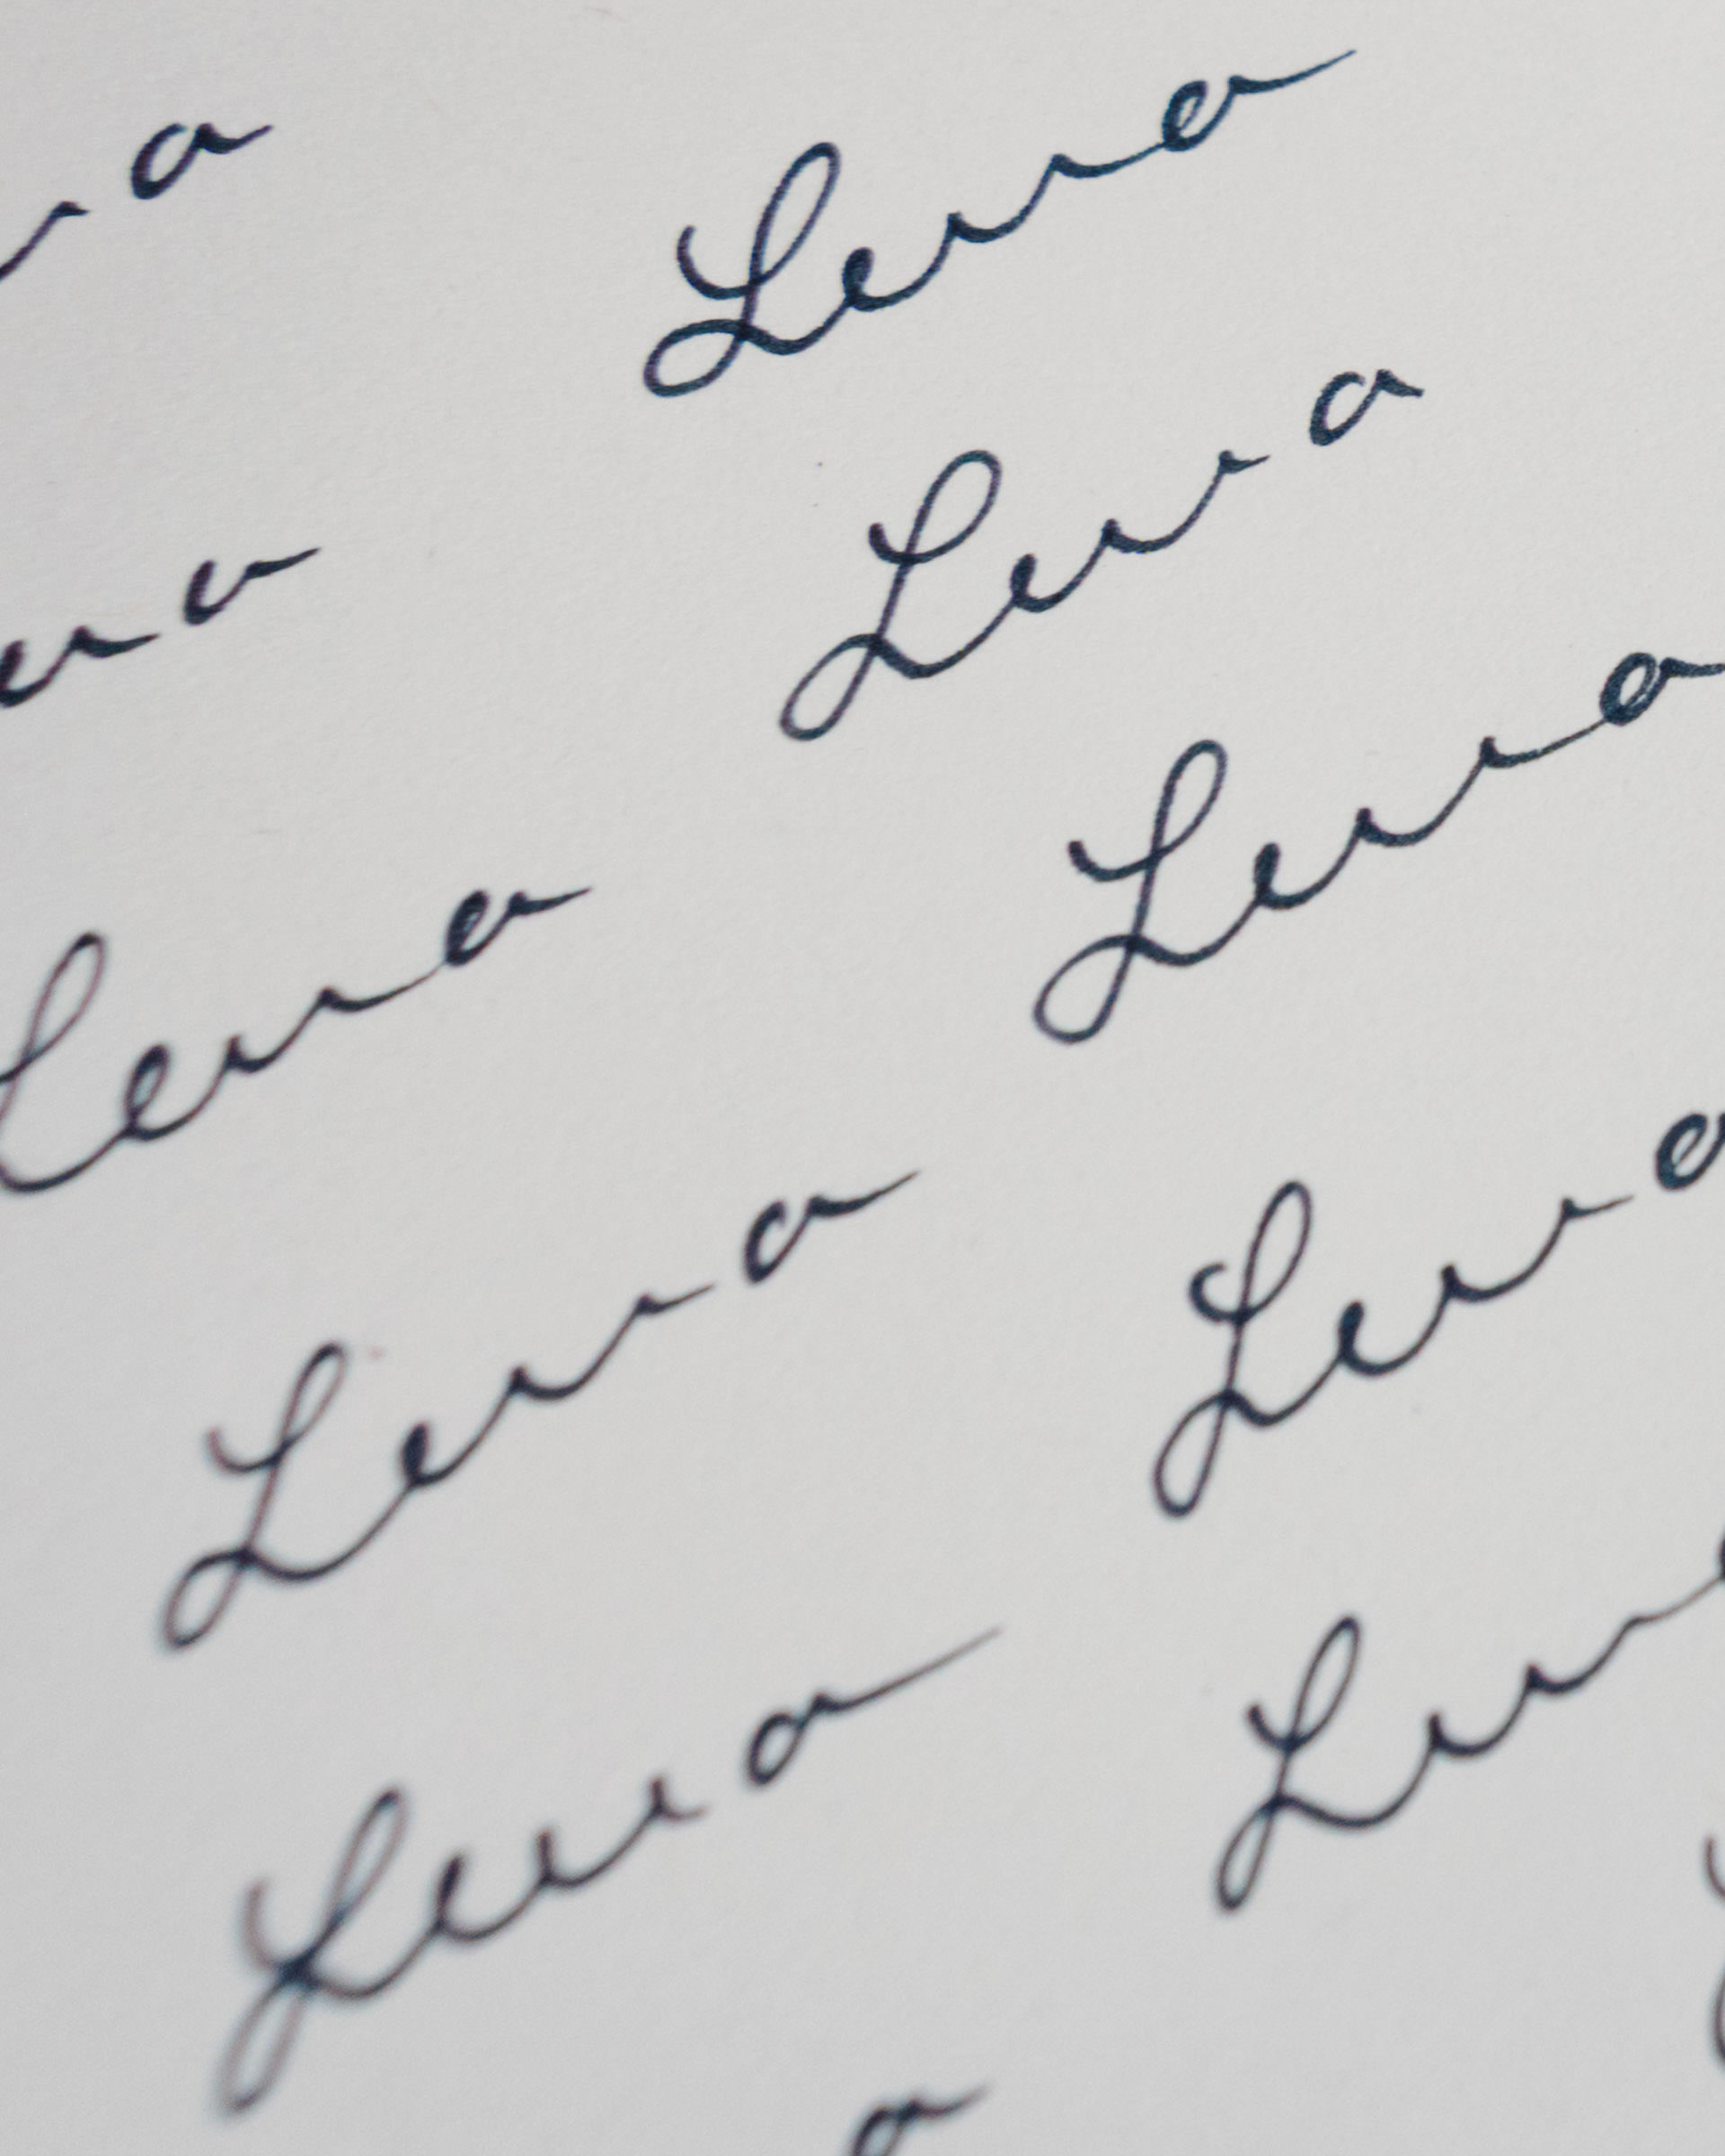 Lena
Lena
Lena
Lena
Lena
Lena
Lena